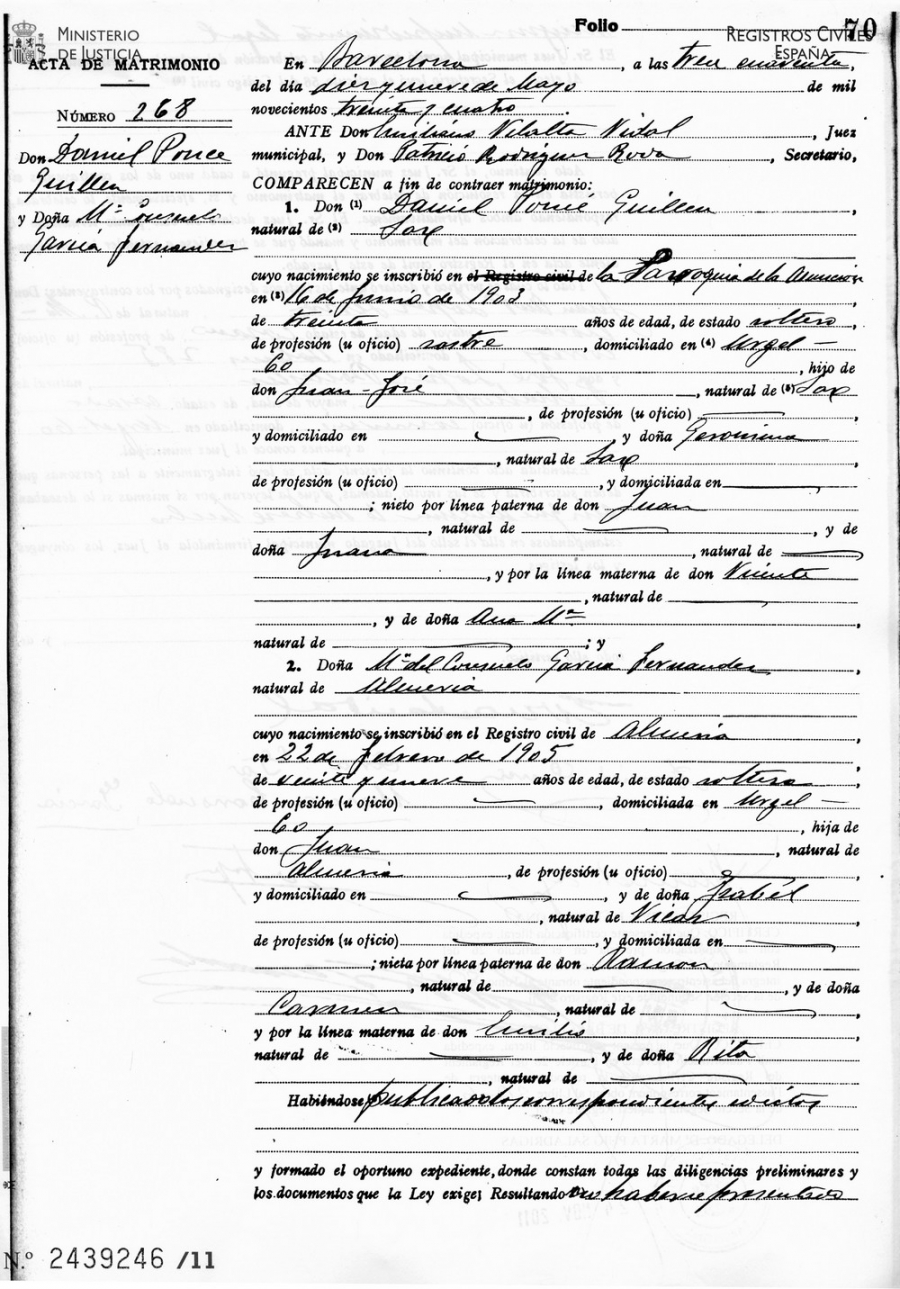 MINISTERIO
DE JUSTICIA
Folio 70
REGISTROS CIVILES
ESPAÑA
ACTA DE MATRIMONIO
NÚMERO 268
Don Daniel Ponce
Guillen
y Doña Mª Consuelo
García Fernandez
En Barcelona, a las trece cuarenta,
del día diez y nueve de Mayo de mil
novecientos treinta y cuatro
ANTE Don Emiliano Vilalta Vidal, Juez
municipal, y Don Patricio Rodríguez Roda, Secretario,
COMPARECEN a fin de contraer matrimonio:
1. Don (1) Daniel Ponce Guillen,
natural de (2) Sax
cuyo nacimiento se inscribió en el Registro civil de la Parroquia de la Asunción
en (3) 16 de Junio de 1903,
de treinta años de edad, de estado soltero,
de profesión (u oficio) sastre, domiciliado en (4) Urgel –
60, hijo de
don Juan-José, natural de (5) Sax
, de profesión (u oficio)
y domiciliado en , y doña Geronima
, natural de Sax,
de profesión (u oficio) , y domiciliada en
; nieto por línea paterna de don Juan
, natural de , y de
doña Juana, natural de
, y por la línea materna de don Vicente
, natural de
, y de doña Ana Mª
natural de ; y
2. Doña Mª del Consuelo García Fernandez,
natural de Almeria
cuyo nacimiento se inscribió en el Registro civil de Almeria
en 22 de febrero de 1905
de veinte y nueve años de edad, de estado soltera,
de profesión (u oficio) , domiciliada en Urgel –
60, hija de
don Juan, natural de
Almeria, de profesión (u oficio) ,
y domiciliado en , y de doña Isabel
, natural de Vicar
de profesión (u oficio) , y domiciliada en
; nieta por línea paterna de don Ramon
, natural de , y de doña
Carmen, natural de ,
y por la línea materna de don Emilio,
natural de , y de doña Rita
, natural de
Habiéndose publicado los correspondientes edictos
y formado el oportuno expediente, donde constan todas las diligencias preliminares y
los documentos que la Ley exige; Resultando no haberse presentado
N.º 2439246 /11